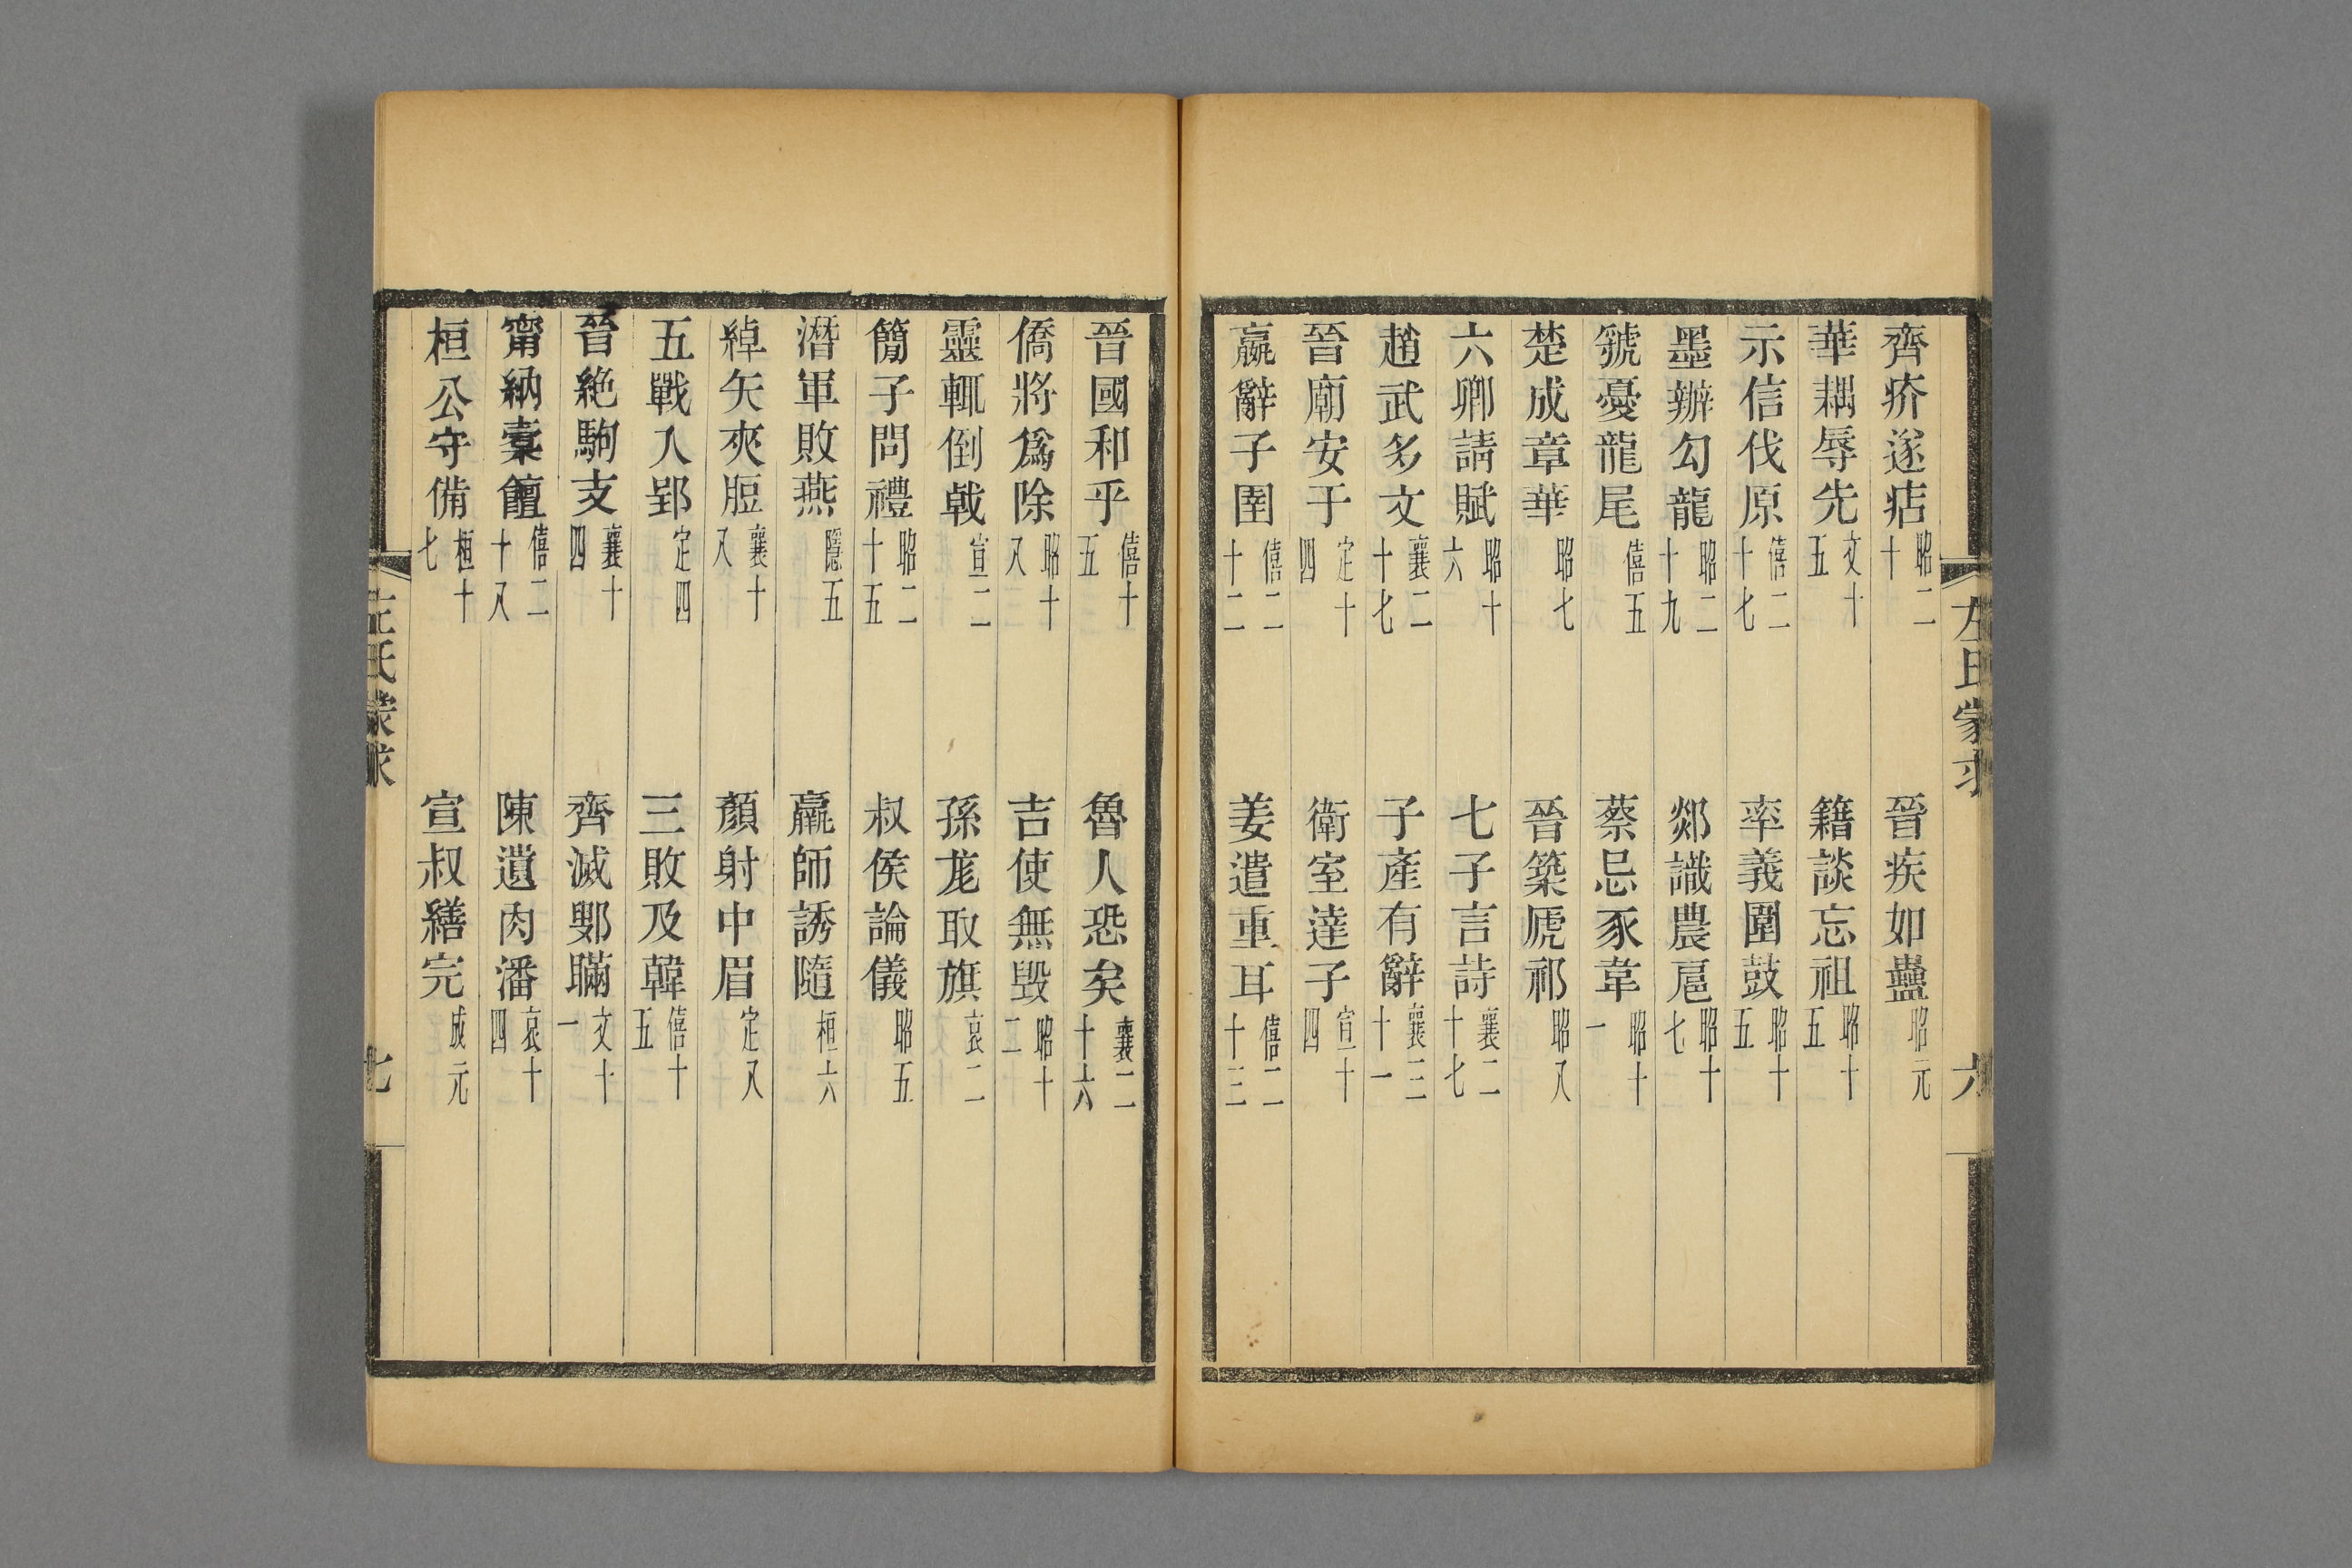 齊疥遂痁昭二十 晉疾如蠱昭元
華耦辱先文十五 籍談忘祖昭十五
示信伐原僖二十七 率義圍鼓昭十五
墨辨勾龍昭二十九 郯識農扈昭十七
虢憂龍尾僖五 蔡忌豕韋昭十一
楚成章華昭七 晉築虒祁昭八
六卿請賦昭十六 七子言詩襄二十七
趙武多文襄二十七 子產有辭襄三十一
晉廟安于定十四 衛室達子宣十四
嬴辭子圉僖二十二 姜遣重耳僖二十三
左氏蒙求 六
晉國和乎僖十五 魯人恐矣襄二十六
僑將爲除昭十八 吉使無毀昭十二
靈輒倒戟宣二 孫尨取旗哀二
簡子問禮昭二十五 叔侯論儀昭五
潛軍敗燕隱五 羸師誘隨桓六
綽矢夾脰襄十八 顏射中眉定八
五戰入郢定四 三敗及韓僖十五
晉絶駒支襄十四 齊滅鄋瞞文十一
甯納橐饘僖二十八 陳遺肉潘哀十四
桓公守備桓十七 宣叔繕完成元
左氏蒙求 七